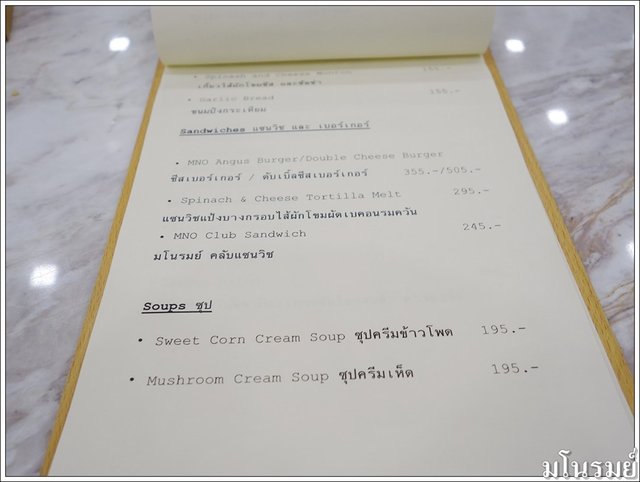 • Spinach and cheese
• Garlic Bread 155.-
ขนมปังกระเทียม
Sandwiches แซนวิช และ เบอร์เกอร์
• MNO Angus Burger/Double Cheese Burger
ชีสเบอร์เกอร์ / ดับเบิ้ลชีสเบอร์เกอร์ 355.-/505.-
• Spinach & Cheese Tortilla Melt 295.-
แซนวิชแป้งบางกรอบไส้ผักโขมผัดเบคอนรมควัน
• MNO Club Sandwich 245.-
มโนรมย์ คลับแซนวิช
Soups ซุป
• Sweet Corn Cream Soup ซุปครีมข้าวโพด 195.-
• Mushroom Cream Soup ซุปครีมเห็ด 195.-
มโนรมย์